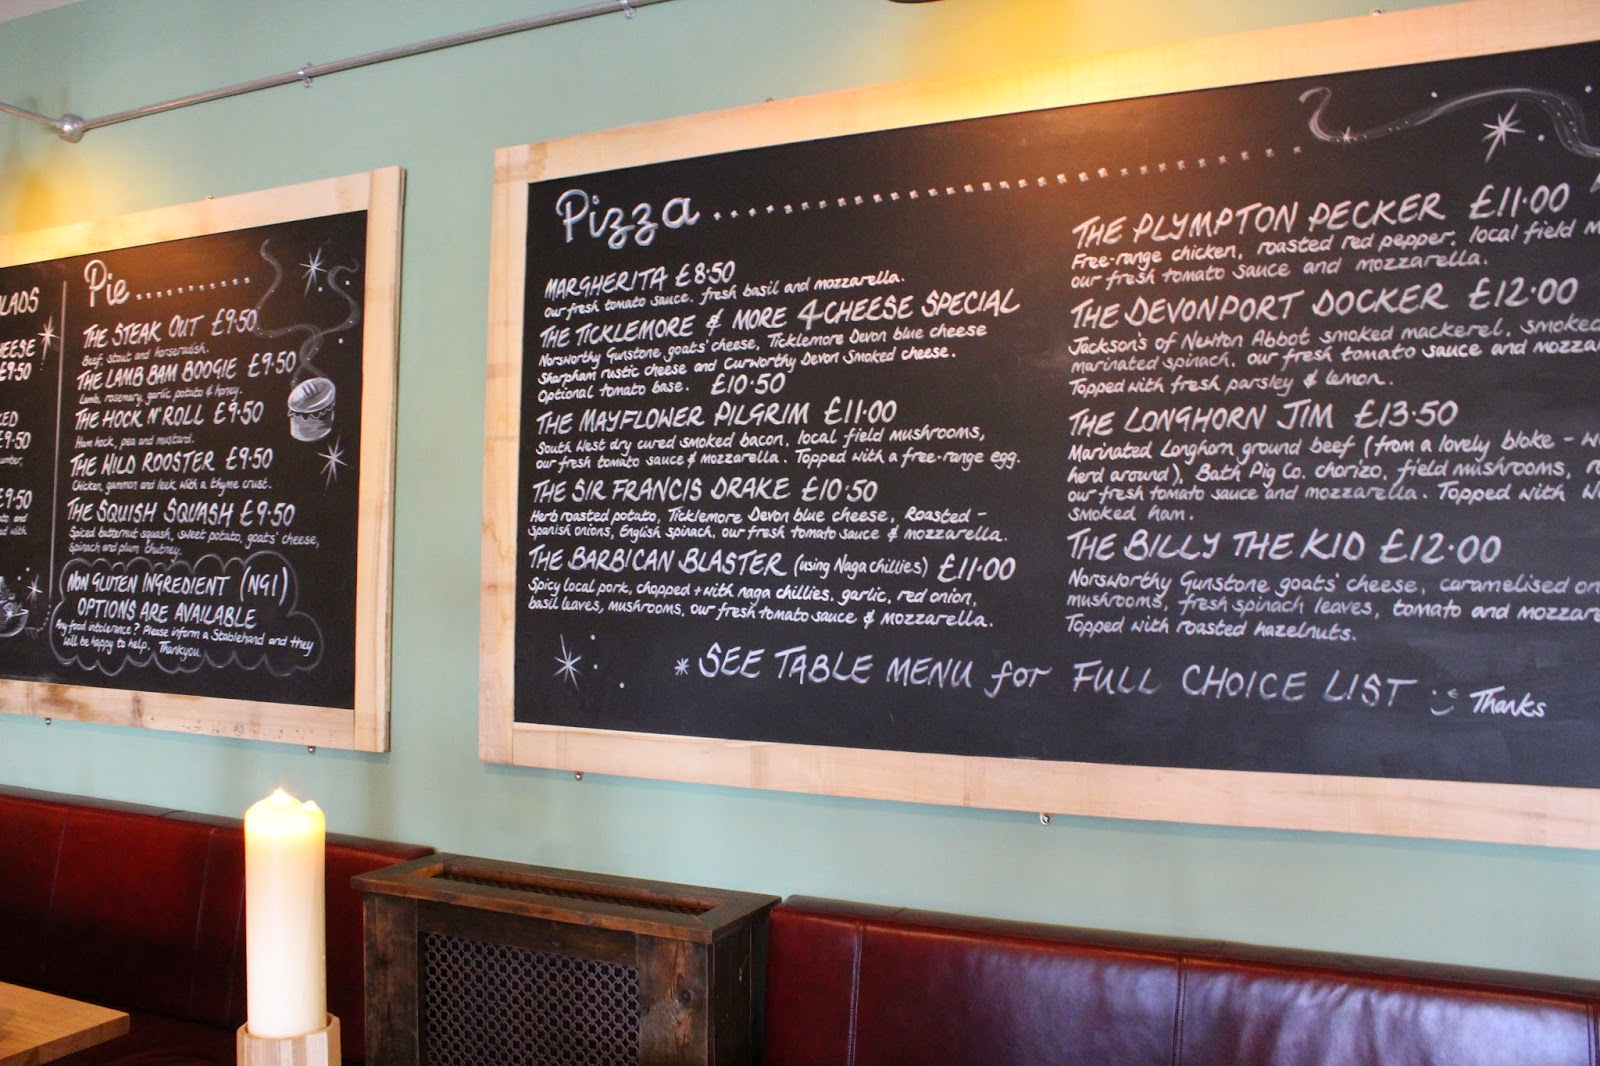 LADS
HEESE
£9.50
KED
£9.50
cumber,
£9.50
to and
d with
Pie...........
THE STEAK OUT £9.50
Beef, stout and horseradish.
THE LAMB BAM BOOGIE £9.50
Lamb, rosemary, garlic potato & honey.
THE HOCK N' ROLL £9.50
Ham hock, pea and mustard.
THE WILD ROOSTER £9.50
Chicken, gammon and leek, with a thyme crust.
THE SQUISH SQUASH £9.50
Spiced butternut squash, sweet potato, goats' cheese,
Spinach and plum chutney.
NON GLUTEN INGREDIENT (NGI)
OPTIONS ARE AVAILABLE
Any food intolerance? Please inform a Stablehand and they
will be happy to help. Thankyou.
Pizza
MARGHERITA £8.50
our fresh tomato sauce, fresh basil and mozzarella.
THE TICKLEMORE & MORE 4 CHEESE SPECIAL
Norsworthy Gunstone goats' cheese, Ticklemore Devon blue cheese
Sharpham rustic cheese and Curworthy Devon Smoked cheese.
Optional tomato base. £10.50
THE MAYFLOWER PILGRIM £11.00
South West dry cured smoked bacon, local field mushrooms,
our fresh tomato sauce & mozzarella. Topped with a free-range egg.
THE SIR FRANCIS DRAKE £10.50
Herb roasted potato, Ticklemore Devon blue cheese, Roasted -
Spanish onions, English spinach, our fresh tomato sauce & mozzarella.
THE BARBICAN BLASTER (using Naga chillies) £11.00
Spicy local pork, chopped + with naga chillies, garlic, red onion,
basil leaves, mushrooms, our fresh tomato sauce & mozzarella.
THE PLYMPTON PECKER £11.00
Free-range chicken, roasted red pepper, local field m
our fresh tomato sauce and mozzarella.
THE DEVONPORT DOCKER £12.00
Jackson's of Newton Abbot smoked mackerel, smoked
marinated spinach, our fresh tomato sauce and mozzar
Topped with fresh parsley & lemon.
THE LONGHORN JIM £13.50
Marinated Longhorn ground beef (from a lovely bloke - w
herd around), Bath Pig Co. chorizo, field mushrooms, r
our fresh tomato sauce and mozzarella. Topped with W
smoked ham.
THE BILLY THE KID £12.00
Norsworthy Gunstone goats' cheese, caramelised on
mushrooms, fresh spinach leaves, tomato and mozzare
Topped with roasted hazelnuts.
* SEE TABLE MENU for FULL CHOICE LIST Thanks